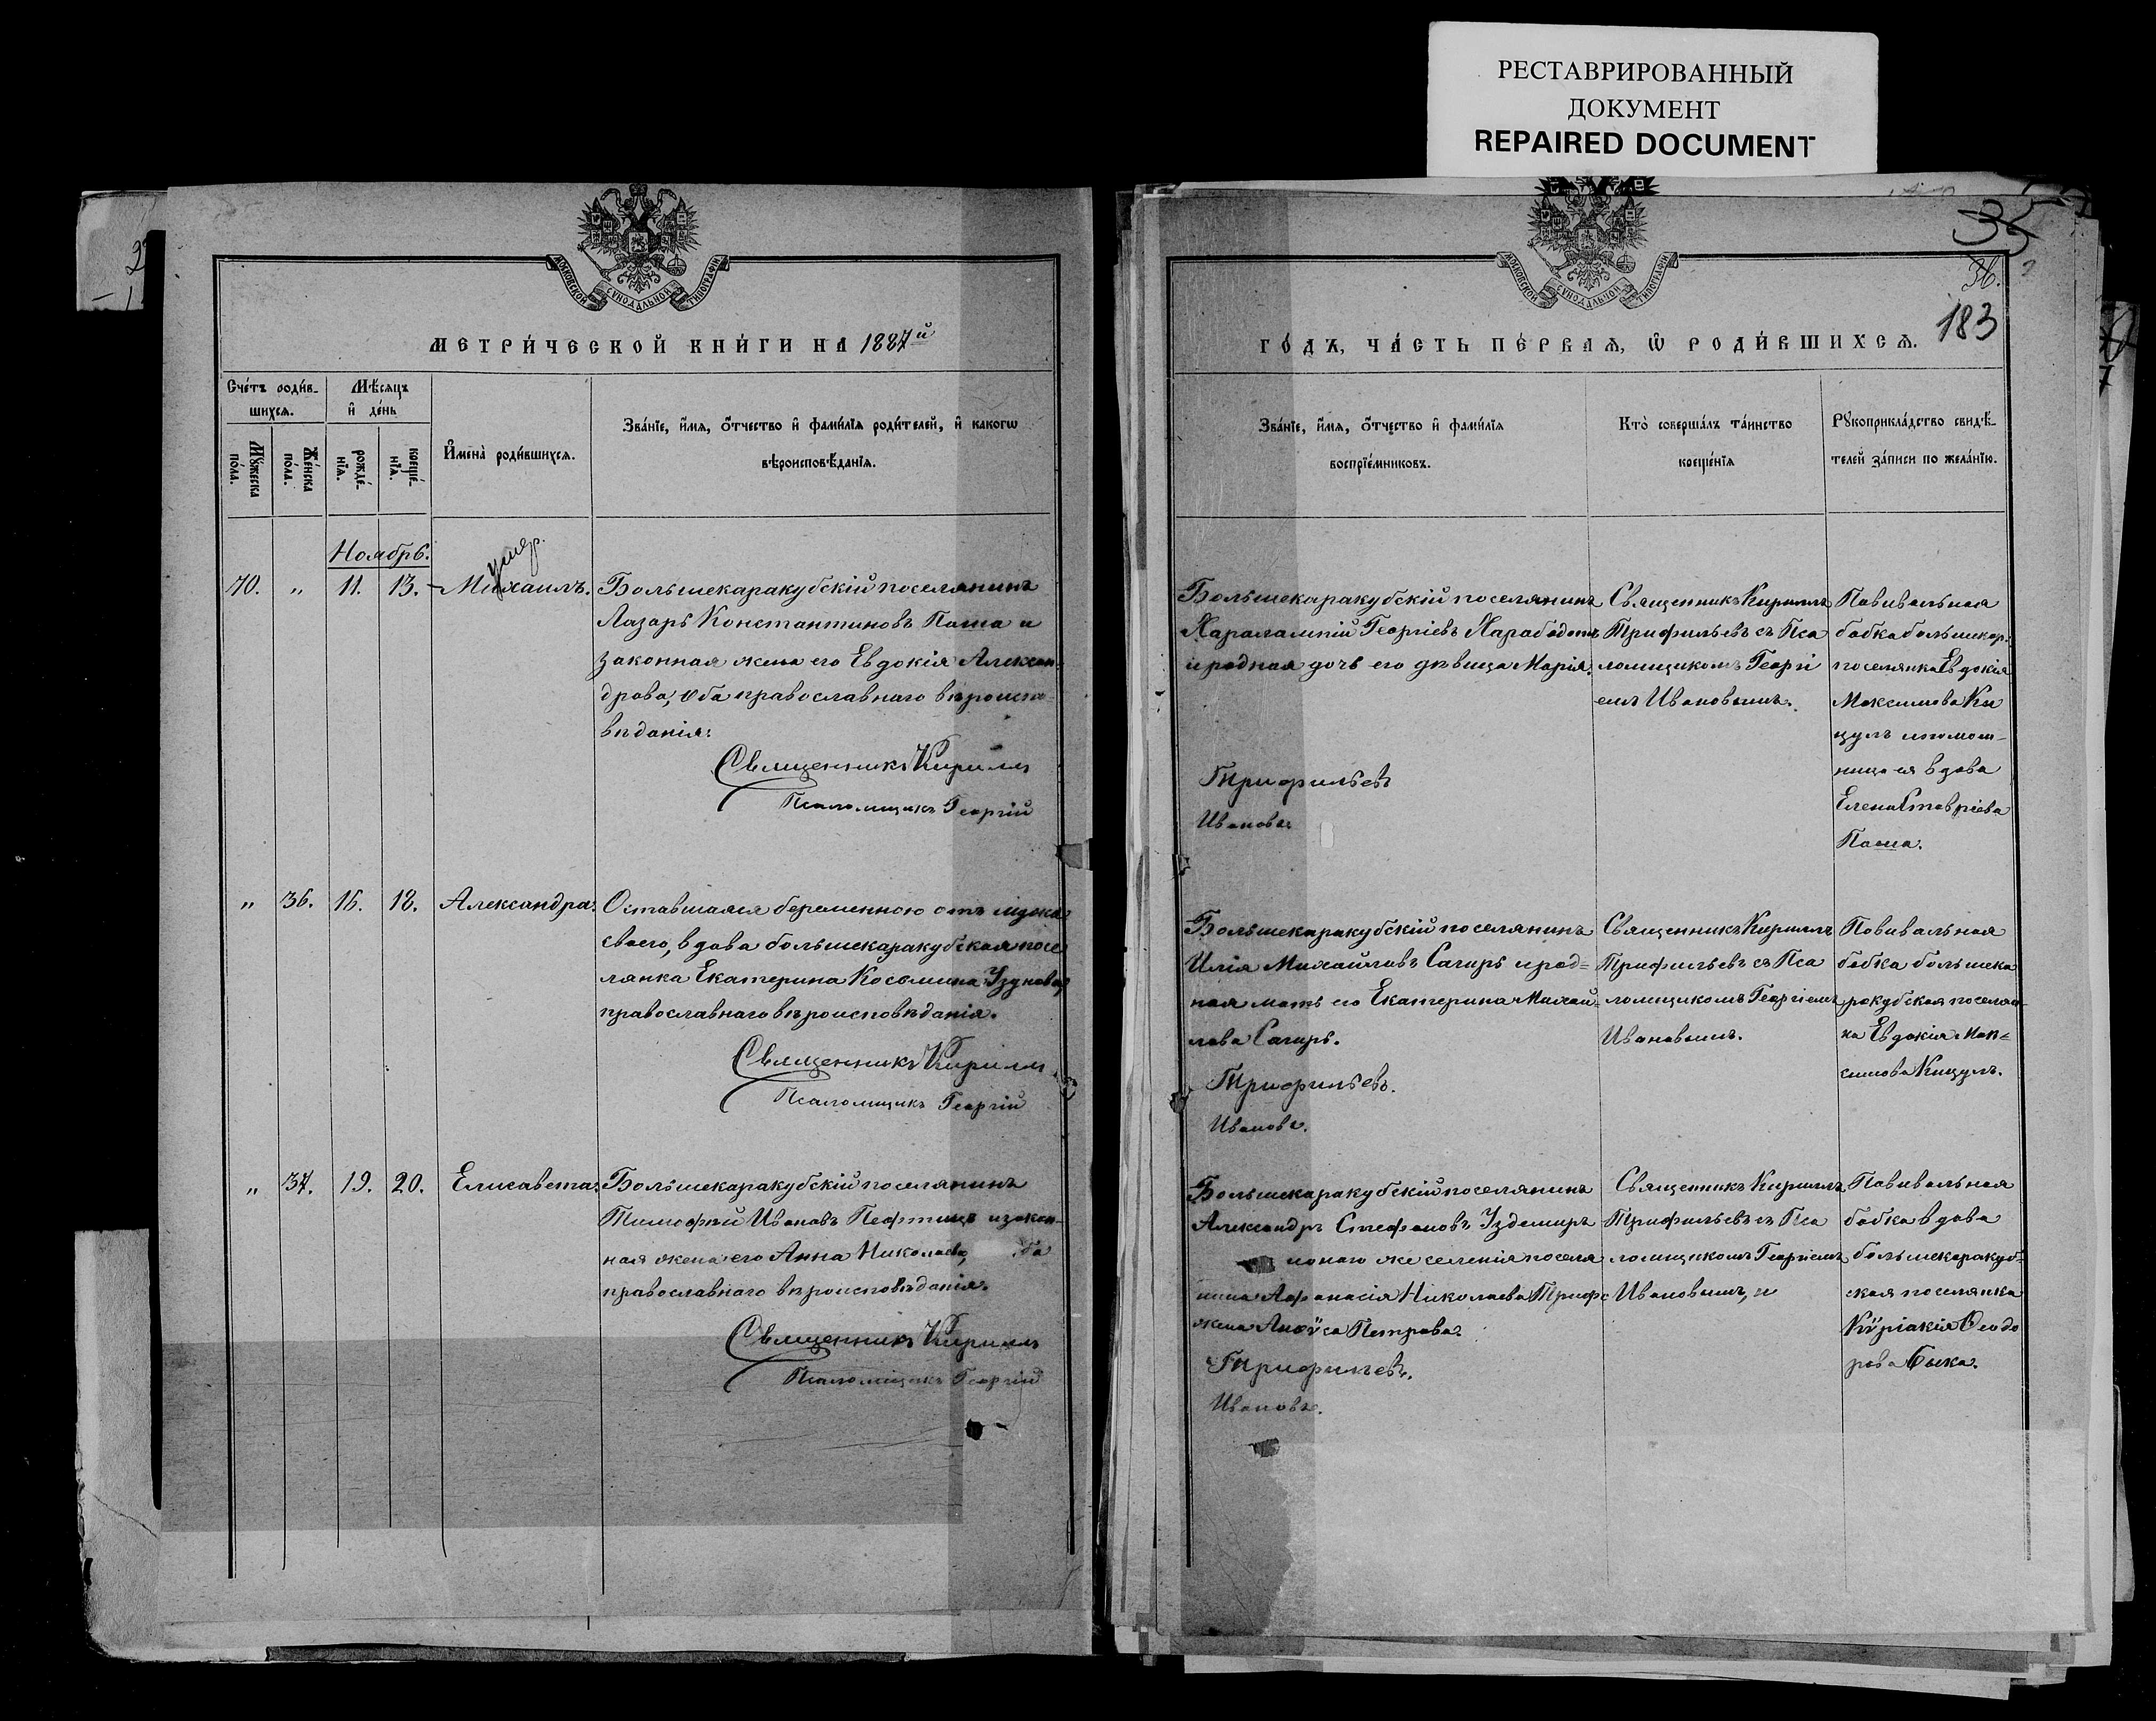 РЕСТАВРИРОВАННЫЙ
ДОКУМЕНТ
REPAIRED DOCUMENT
МОСКОВСКОЙ СУНОДАЛЬНОЙ ТИПОГРАФІИ
МЕТРИ́ЧЕСКОЙ КНИ́ГИ НА 1887й
Сче́тъ роди́в-
шихся.
Мѣсяцъ
и҆ де́нь
Му́жеска
по́ла.
Же́нска
по́ла.
рожде́-
нїѧ.
креще́-
нїѧ.
И҆мена̀ роди́вшихсѧ.
Зва́нїе, и҆́мѧ, ѻ҆́тчество и҆ фами́лїѧ роди́телей, и҆ какогѡ
вѣроисповѣ́данїѧ.
Ноябрь.
умер.
70. " 11. 13. Михаилъ.
Большекаракубскій поселянинъ
Лазарь Константиновъ Паша и
законная жена его Евдокія Алексан-
дрова, оба православнаго вѣроиспо-
вѣданія.
Священникъ Кириллъ
Псаломщикъ Георгій
" 36. 16. 18. Александра.
Оставшаяся беременною отъ мужа
своего, вдова большекаракубская посе
лянка Екатерина Космина Узунова,
православнаго вѣроисповѣданія.
Священникъ Кириллъ
Псаломщикъ Георгій
" 37. 19. 20. Елисавета.
Большекаракубскій поселянинъ
Тимофей Ивановъ и закон-
ная жена его Анна Николаева, ба
православнаго вѣроисповѣданія.
Священникъ Кириллъ
Псаломщикъ Георгій
МОСКОВСКОЙ СУНОДАЛЬНОЙ ТИПОГРАФІИ
35
36.
183
ГО́ДЪ, ЧА́СТЬ ПЕ́РВАѦ, Ѡ҆ РОДИ́ВШИХСѦ.
Зва́нїе, и҆́мѧ, ѻ҆́тчество и҆ фами́лїѧ
воспрїе́мниковъ.
Кто̀ соверша́лъ та́инство
креще́нїѧ
Рꙋкоприкла́дство свидѣ́-
телей за́писи по жела́нїю.
Большекаракубскій поселянинъ
Харалампій Георгіевъ
и родная дочь его дѣвица Марія.
Трифильевъ
Ивановъ
Священникъ Кириллъ
Трифильевъ съ Пса
ломщикомъ Георгі
емъ Ивановымъ.
Повивальная
бабка большекар:
поселянка Евдокія
Максимова Ки
цулъ и помощ-
ница ея вдова
Елена Ставріева
Паша.
Большекаракубскій поселянинъ
Илія Михайловъ Сагирь и род=
ная мать его Екатерина Михай-
лова Сагирь.
Трифильевъ.
Ивановъ.
Священникъ Кириллъ
Трифильевъ съ Пса
ломщикомъ Георгіемъ
Ивановымъ.
Повивальная
бабка большека
ракубская поселян-
ка Евдокія Мак=
симова Кицулъ.
Большекаракубскій поселянинъ
Александръ Стефановъ Уздемиръ
и онаго же селенія поселя
нина Афанасія Николаева
жена Петрова.
Трифильевъ.
Ивановъ.
Священникъ Кириллъ
Трифильевъ съ Пса
ломщикомъ Георгіемъ
Ивановымъ,
Повивальная
бабка вдова
большекаракуб=
ская поселянка
Кѵріакія Ѳеодо
рова Быка.